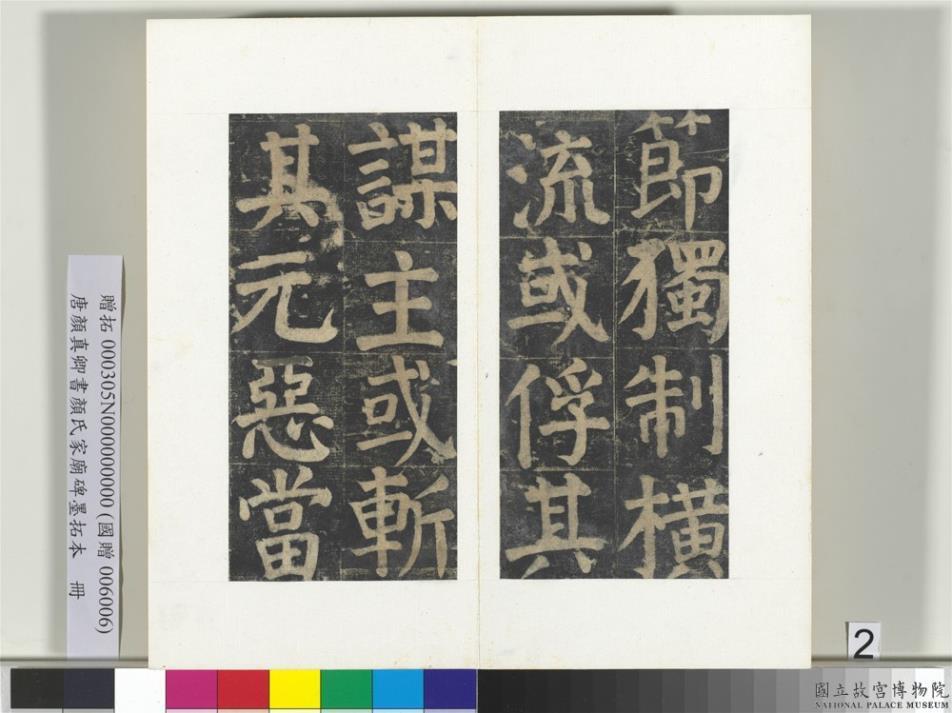 節獨制橫
流或俘其
謀主或斬
其元惡當
贈拓 000305N000000000 (國贈 006006)
唐顏真卿書顏氏家廟碑墨拓本 冊
2
國立故宮博物院
NATIONAL PALACE MUSEUM